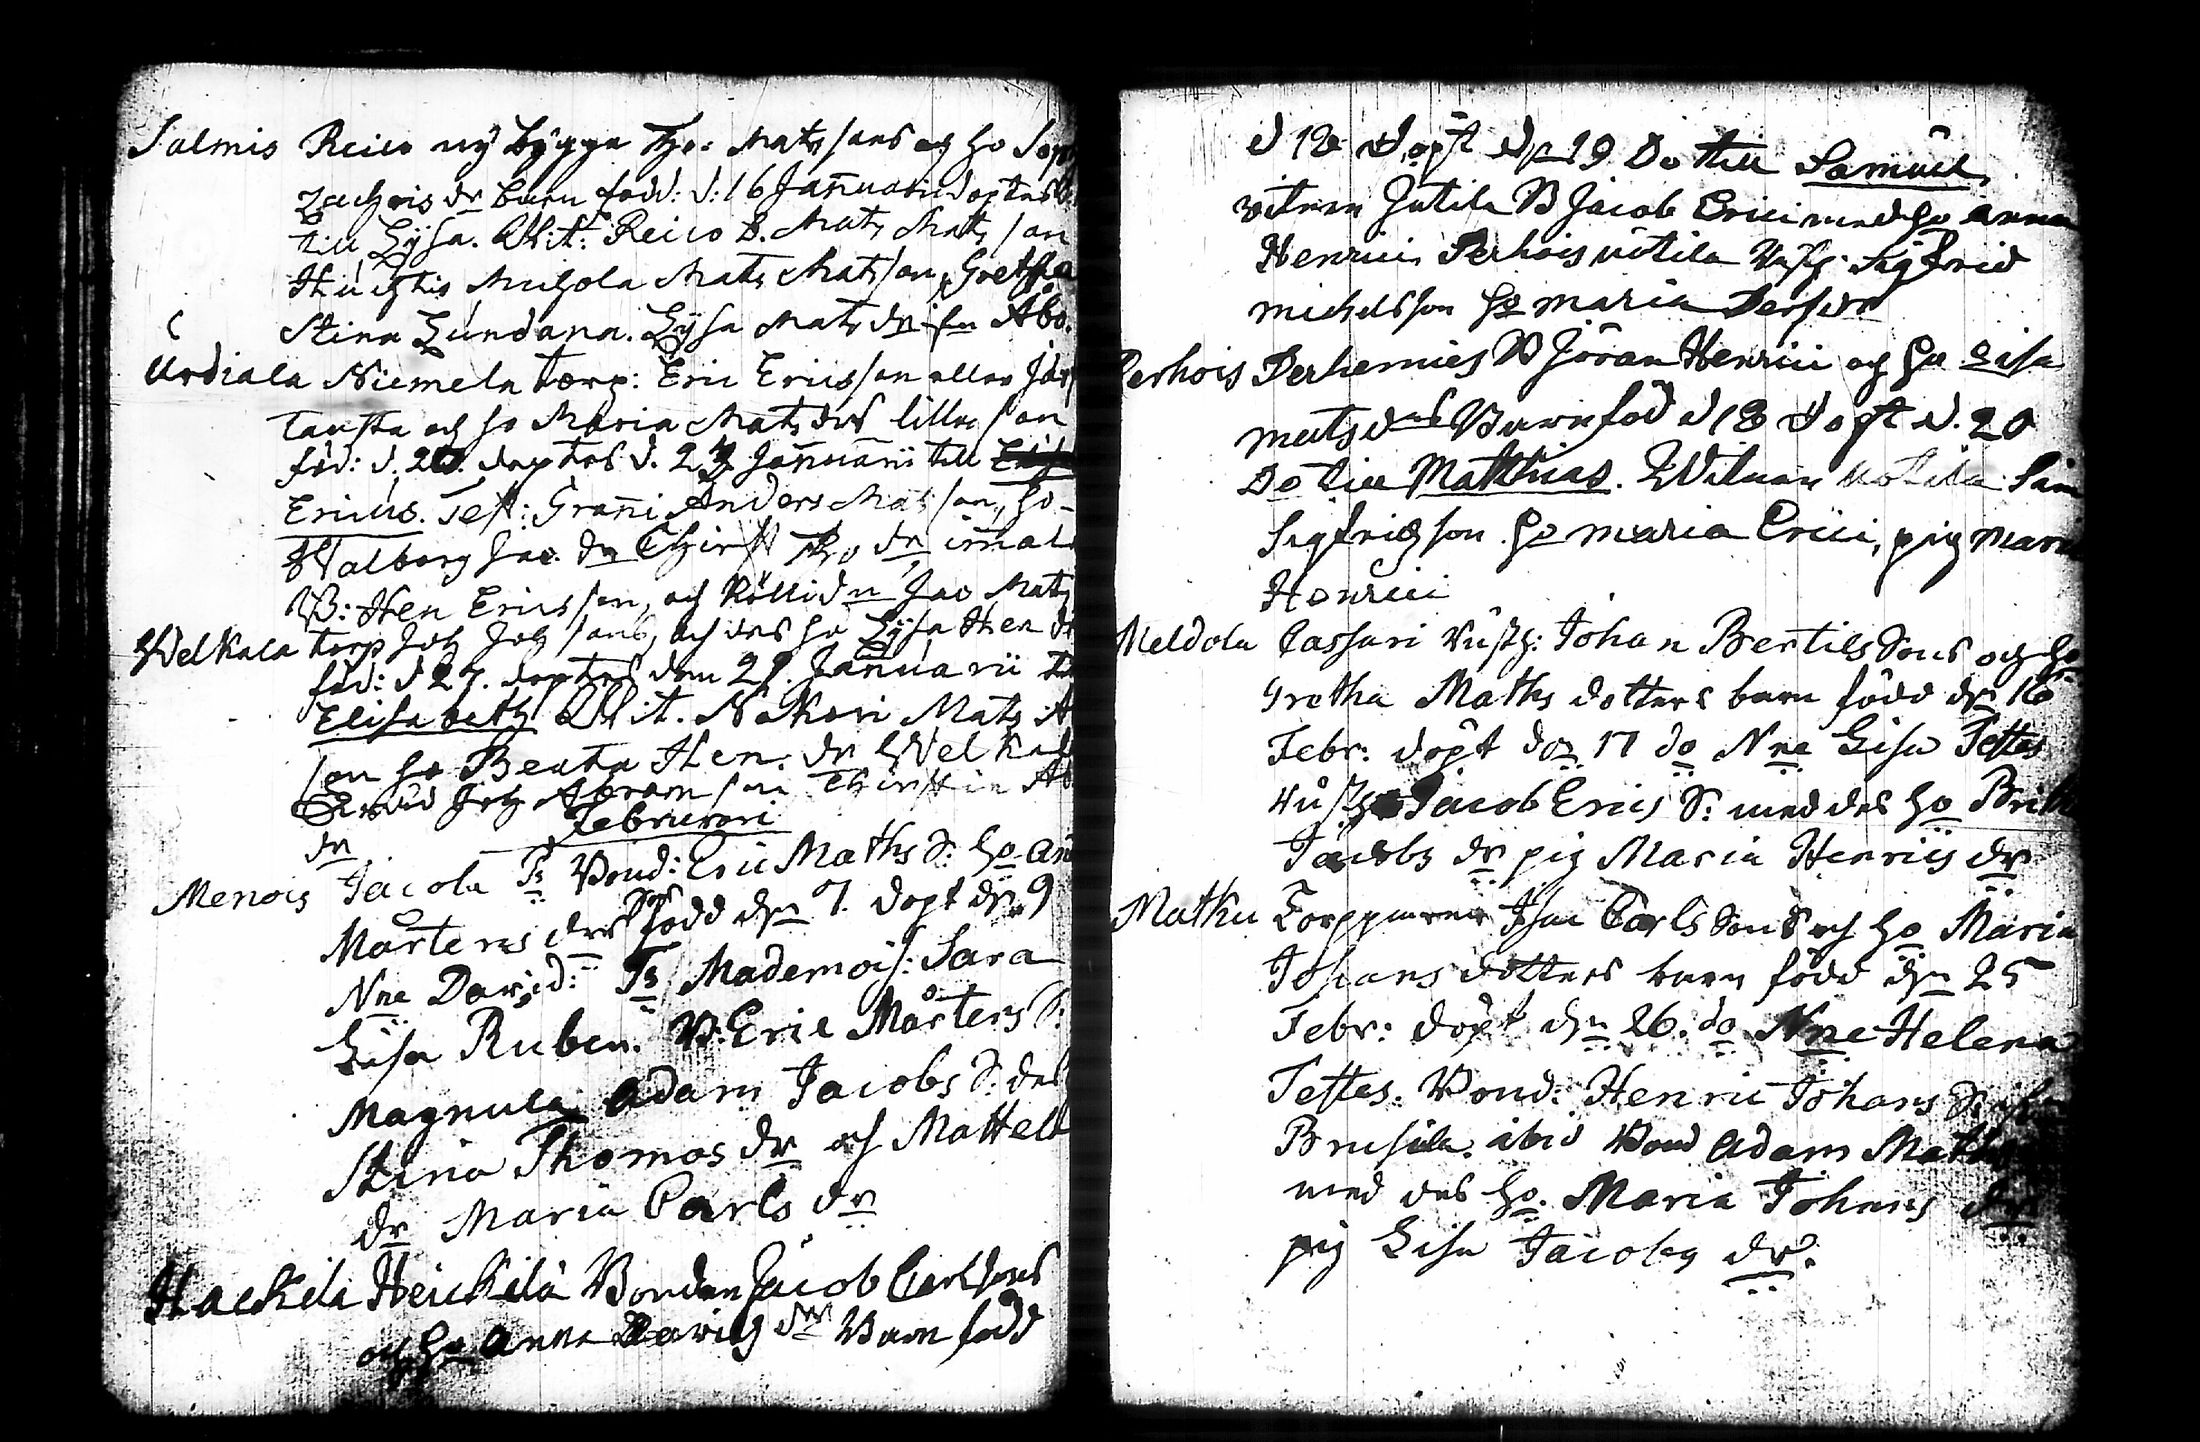 Salmis Reico nÿ bÿgga Tho: Matssons och ho Soph
Zachris dr barn född: d: 16 Januarii döptes
till Lÿsa. Wit: Reico B. Mats Mats son
Huchtis Mats Matsson, Gretha
Stina Lundana. Lÿsa Mats dr fr Åbo.
Urdiala Niemela torp: Eric Ericsson eller
och ho Maria Mats drs lilla son
föd: d. 20. döptes d. 23 Januarii till
Ericus. Test: Grani Anders Matsson, ho
Walborg Jac. dr Thirst Tho dr,
B: Hen Ericsson, och Kölli dn Jac Mats
Welkala torp Joh Joh sons, och des ho Lÿsa Hen dr
föd: d 27. döptes den 29. Januarii
Elisabeth Wit. Nokari Mats
son ho Beata Hen. dr Welkala
Joh Abram son Thirstin Ab
dr Februari
Menois Jacola Bond: Eric Maths S: ho
Mårtens drs son född den 7. döpt dn 9
Nne David: Ts Mademois: Sara
Lisa Ruben. B: Eric Mårtens S:
Magnula Adam Jacobs S: des
Stina Thomas dr och Mattela
dr Maria Carls dr
Hackila Heickilä Bonden Jacob Carlssons
och ho Anna Davids drs Barn född
d 18 döpt dn 19 Do till Samuel
witnen Jutila B Jacob Erici med ho Anna
Henrici Perhois Uotila Rusth: Sigfrid
Michelsson ho Maria Pers dr
Perhois Perhemies B Jöran Henrici och ho Lisa
mats drs Barn föd d 18 döpt d. 20
Do till Matthias. Witnen Uotila Sim
Sigfridsson ho Maria Erici, pig Maria
Henrici
Meldola Cassari Rusth: Johan Bertils Sons och ho
Gretha Maths dotters barn född dn 16
Febr: döpt dn 17 do Nne Lisa Testes
Rusth Jacob Erics S: med des ho Britha
Jacobs dr pig Maria Henrics dr
Matku Torpparen Isac Carls Sons och ho Maria
Johans dotters barn född dn 25
Febr: döpt dn 26. do Nne Helena
Testes. Bond: Henric Johans S:
Brusila. ibid Bond Adam Maths
med des ho. Maria Johans dr
pig Lisa Jacobs dr.